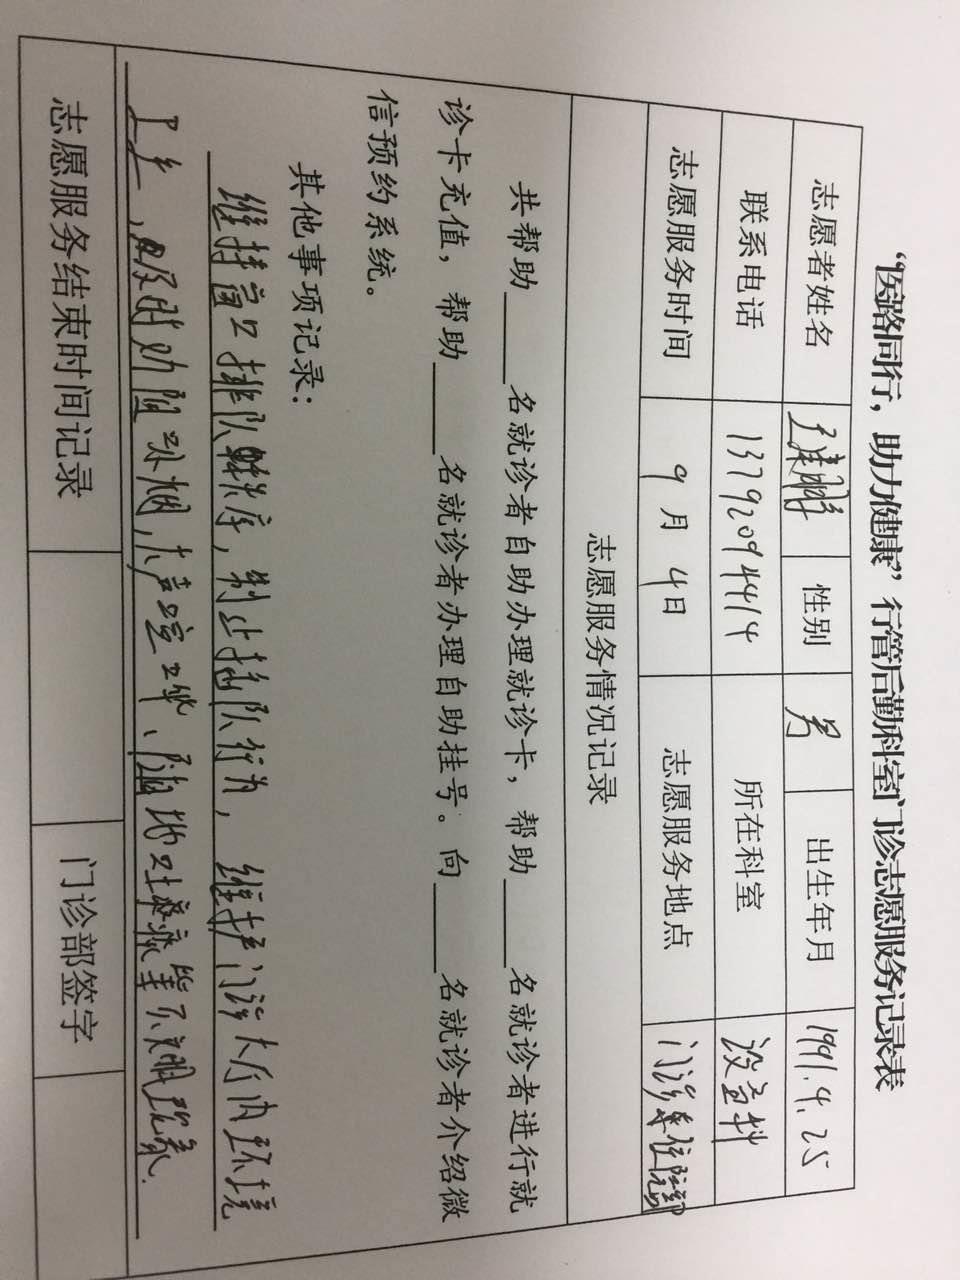 “医路同行，助力健康”行管后勤科室门诊志愿服务记录表
志愿者姓名 性别 男 出生年月 1991.4.25
联系电话 13792094414 所在科室 设备科
志愿服务时间 9月4日 志愿服务地点 门诊住院部
志愿服务情况记录
共帮助____名就诊者自助办理就诊卡，帮助____名就诊者进行就
诊卡充值，帮助____名就诊者办理自助挂号。向____名就诊者介绍微
信预约系统。
其他事项记录：
维持窗口排队秩序，制止插队行为，维护门诊大厅内环境
卫生，及时劝阻吸烟，大声喧哗、随地吐痰等不文明现象.
志愿服务结束时间记录 门诊部签字